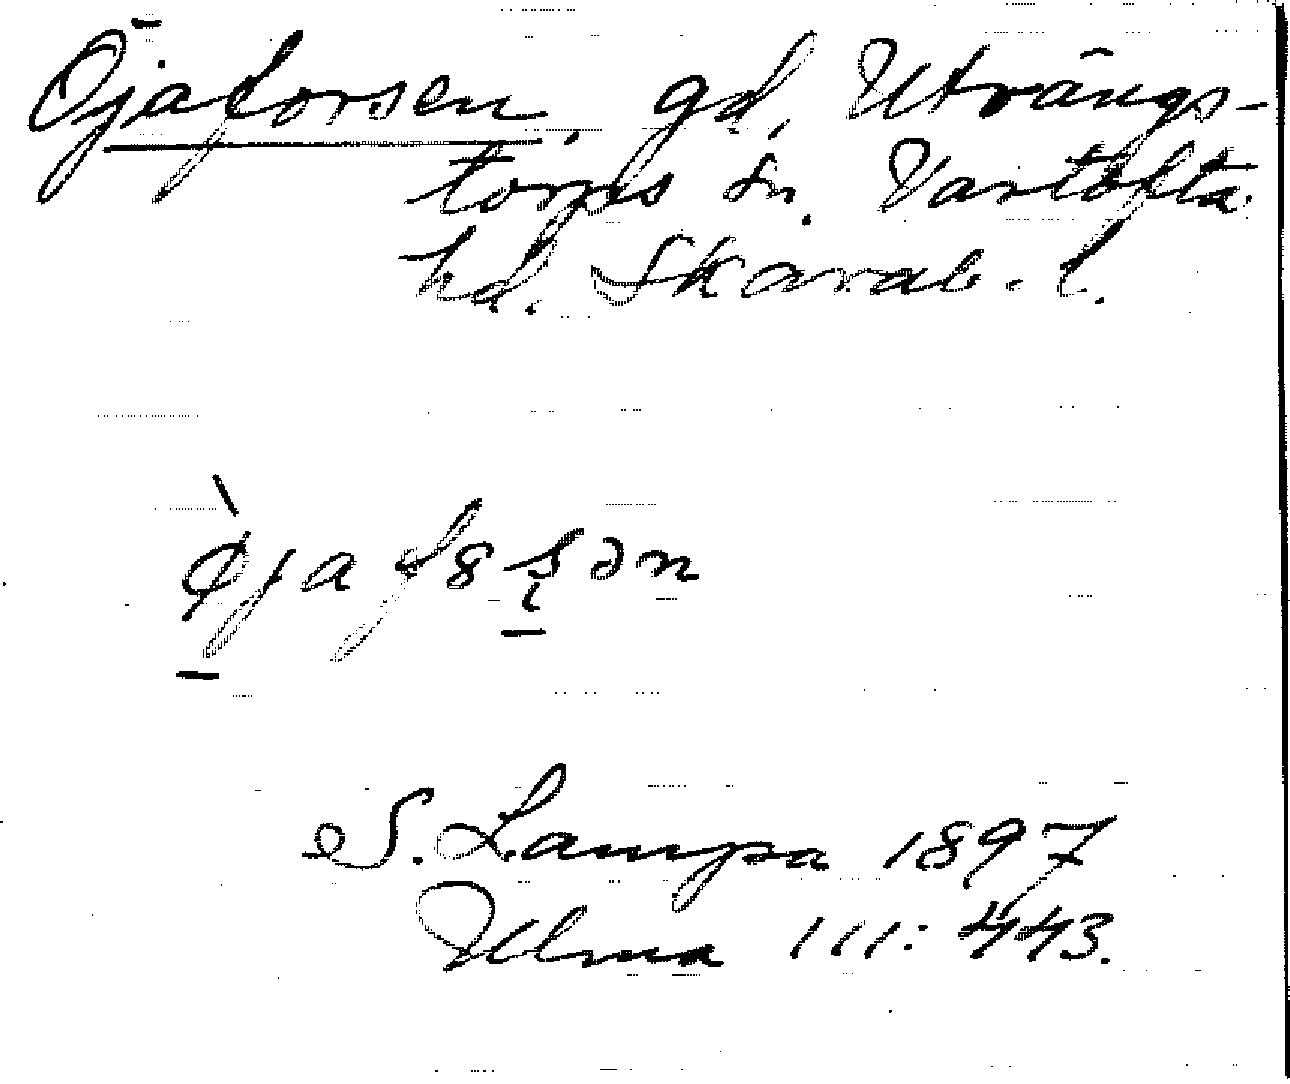 Öjaforsen, gd, Utvängs-
torps sn, Vartofta
hd. Skarab. l.
S. Lampa 1897
Ulma 111: 443.